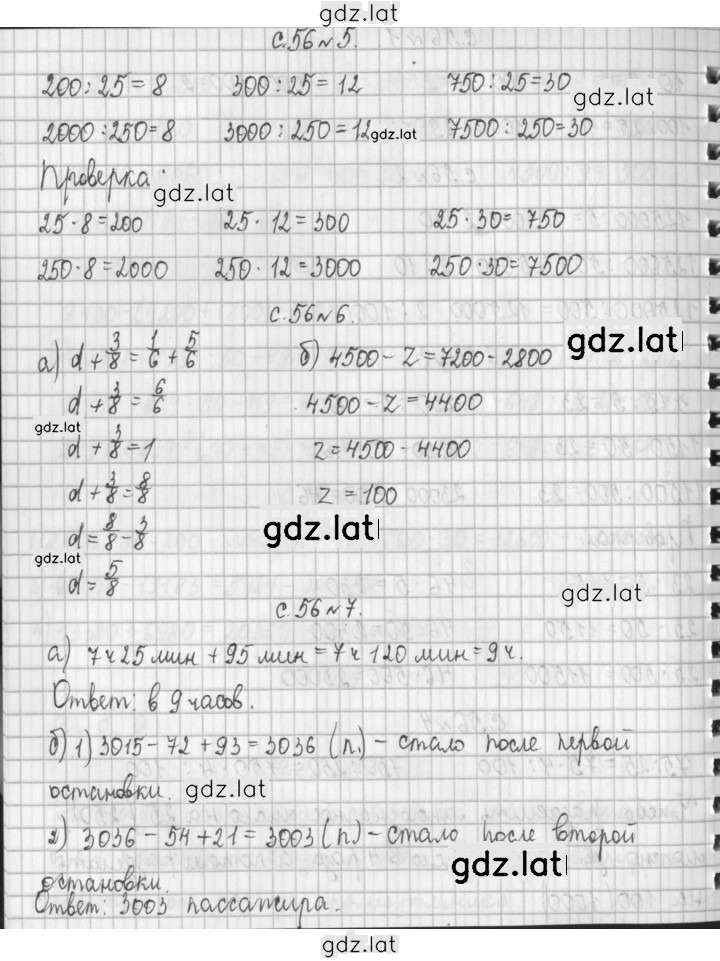 gdz.lat
с.56 №5.
200 : 25 = 8 300 : 25 = 12 750 : 25 = 30
gdz.lat
2000 : 250 = 8 3000 : 250 = 12 gdz.lat 7500 : 250 = 30
Проверка:
gdz.lat
25 · 8 = 200 25 · 12 = 300 25 · 30 = 750
250 · 8 = 2000 250 · 12 = 3000 250 · 30 = 7500
с.56 №6.
а) d + 3/8 = 1/6 + 5/6 б) 4500 - z = 7200 - 2800 gdz.lat
d + 3/8 = 6/6 4500 - z = 4400
gdz.lat
d + 3/8 = 1 z = 4500 - 4400
d + 3/8 = 8/8 z = 100
d = 8/8 - 3/8 gdz.lat
gdz.lat
d = 5/8 gdz.lat
с.56 №7.
а) 7ч 25 мин + 95 мин = 7ч 120 мин = 9 ч.
Ответ: в 9 часов.
б) 1) 3015 - 72 + 93 = 3036 (п.) - стало после первой
остановки. gdz.lat
2) 3036 - 54 + 21 = 3003 (п) - стало после второй
gdz.lat
остановки.
Ответ: 3003 пассажира.
gdz.lat